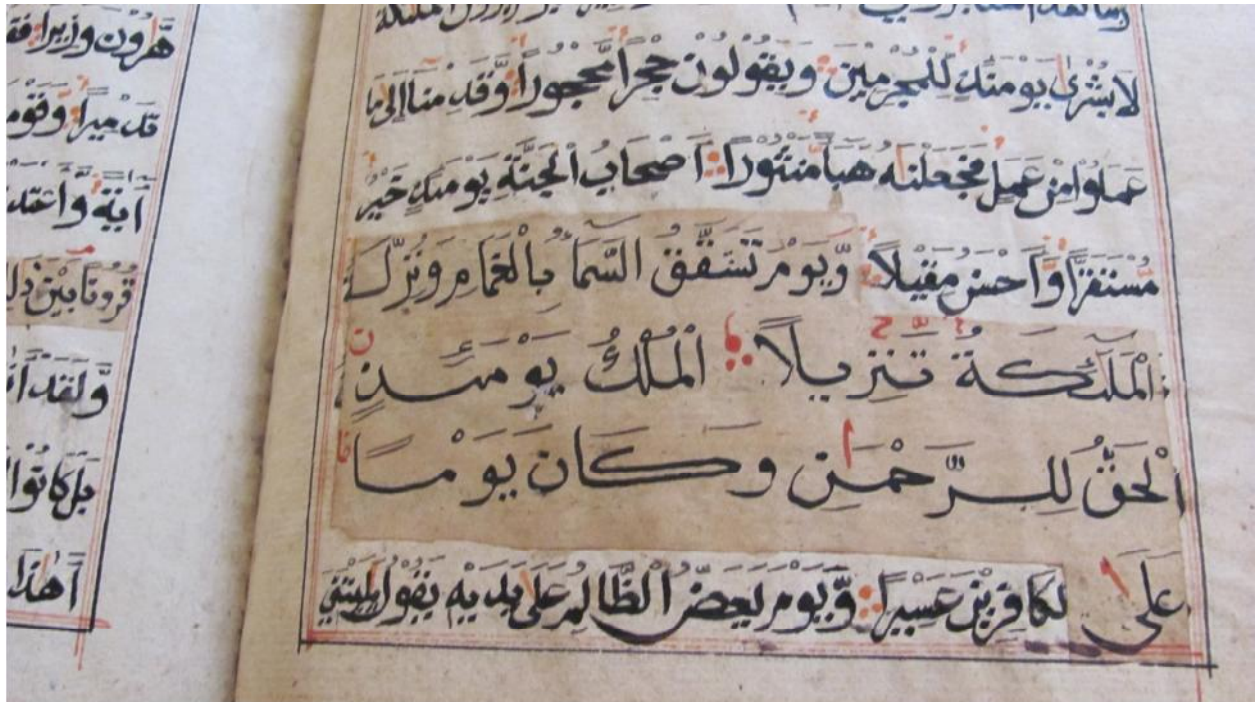 الْمَلٰئِكَةَ
لَا بُشْرٰى يَوْمَئِذٍ لِّلْمُجْرِمِيْنَ وَيَقُوْلُوْنَ حِجْرًا مَّحْجُوْرًا وَّقَدِمْنَا اِلٰى مَا
عَمِلُوْا مِنْ عَمَلٍ فَجَعَلْنٰهُ هَبَآءً مَّنْثُوْرًا اَصْحَابُ الْجَنَّةِ يَوْمَئِذٍ خَيْرٌ
مُّسْتَقَرًّا وَّاَحْسَنُ مَقِيْلًا وَّيَوْمَ تَشَقَّقُ السَّمَآءُ بِالْغَمَامِ وَنُزِّلَ
الْمَلٰٓئِكَةُ تَنْزِيلًا الْمُلْكُ يَوْمَئِذٍ
الْحَقُّ لِلرَّحْمٰنِ وَكَانَ يَوْمًا
عَلَى لكَافِرِيْنَ عَسِيْرًا وَّيَوْمَ يَعَضُّ الظَّالِمُ عَلٰى يَدَيْهِ يَقُوْلُ يٰلَيْتَنِي
هٰرُوْنَ وَزِيْرًا
اٰيَةً
قُرُوْنًا بَيْنَ
وَلَقَدْ
بَلْ كَانُوْا
اَهٰذَا